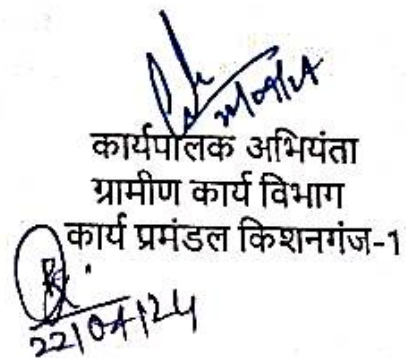 22/04/24
कार्यपालक अभियंता
ग्रामीण कार्य विभाग
कार्य प्रमंडल किशनगंज-1
22/04/24